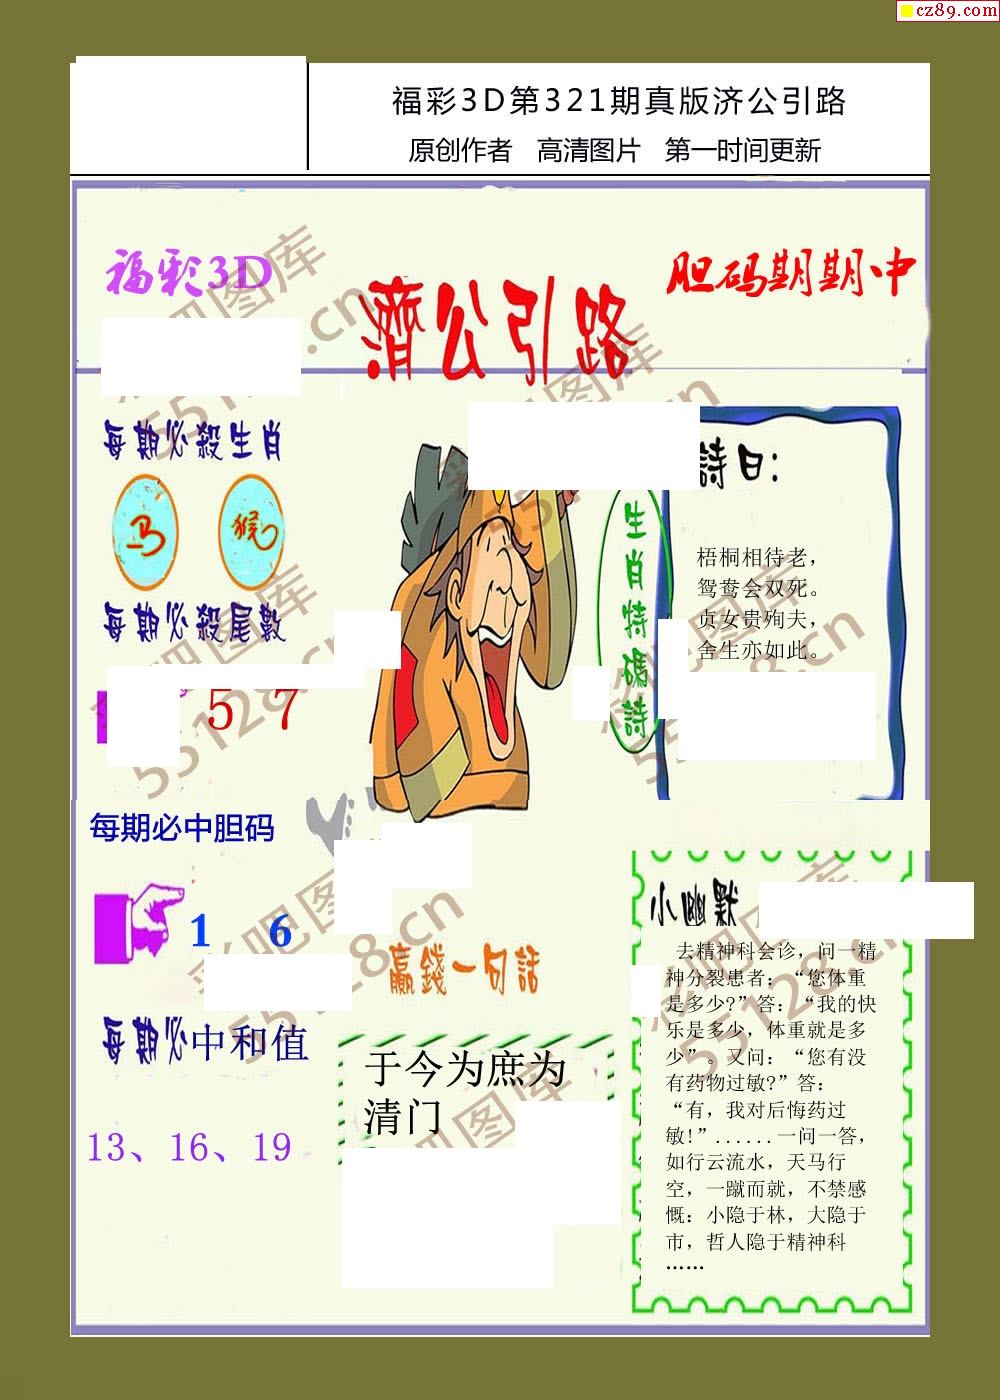 cz89.com
福彩3D第321期真版济公引路
原创作者 高清图片 第一时间更新
福彩3D
濟公引路
胆码期期中
每期必殺生肖
马 猴
每期必殺尾數
5 7
每期必中胆码
1 6
每期必中和值
13、16、19
生肖特碼詩
詩曰：
梧桐相待老，
鸳鸯会双死。
贞女贵殉夫，
舍生亦如此。
贏錢一句話
于今为庶为
清门
小幽默
去精神科会诊，问一精
神分裂患者：“您体重
是多少?”答：“我的快
乐是多少，体重就是多
少”。又问：“您有没
有药物过敏?”答：
“有，我对后悔药过
敏!”......一问一答，
如行云流水，天马行
空，一蹴而就，不禁感
慨：小隐于林，大隐于
市，哲人隐于精神科
……
彩吧图库
55128.cn